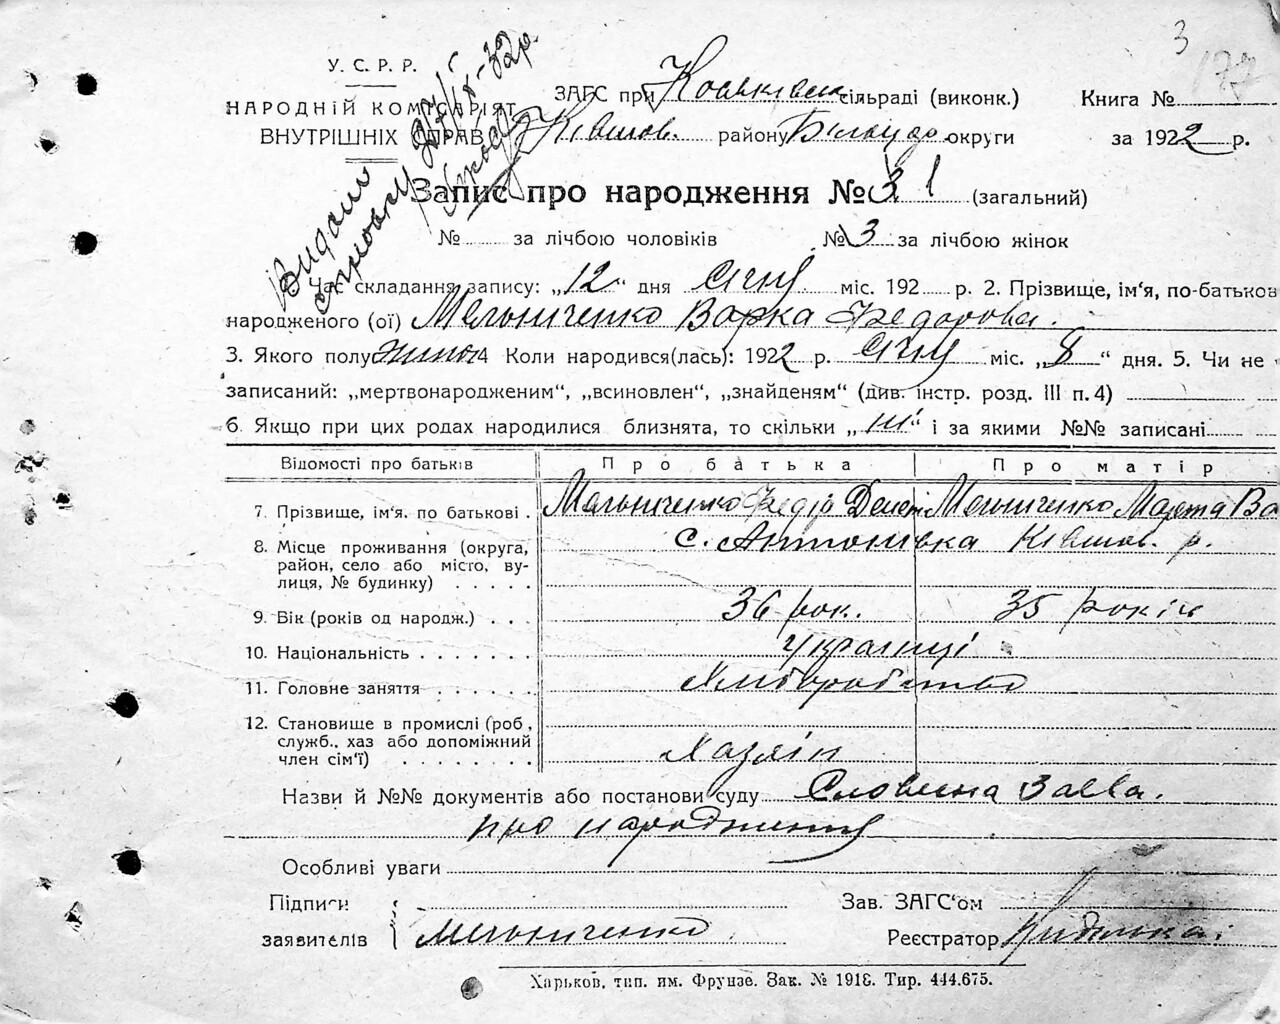 3
177
У. С. Р. Р.
НАРОДНІЙ КОМІСАРІЯТ
ВНУТРІШНІХ СПРАВ
Видали
ЗАГС при сільраді (виконк.)
Книга №
Ківшов. району Білоцер округи
за 1922 р.
Запис про народження № 3 (загальний)
№ за лічбою чоловіків № 3 за лічбою жінок
Час складання запису: „12“ дня січня міс. 192 р. 2. Прізвище, ім'я, по-батькові
народженого (ої) Мельниченко Варка Федорова.
3. Якого полу жіноч 4 Коли народився(лась): 1922 р. січня міс. „8“ дня. 5. Чи не
записаний: „мертвонародженим“, „всиновлен“, „знайденям“ (див. інстр. розд. III п. 4)
6. Якщо при цих родах народилися близнята, то скільки „ “ і за якими №№ записані
Відомості про батьків Про батька Про матір
7. Прізвище, ім'я. по батькові . Мельниченко Федір Мельниченко Марта
8. Місце проживання (округа, с. Антонівка Ківшов. р.
район, село або місто, ву-
лиця, № будинку) . . . . .
9. Вік (років од народж.) . . . 36 рок. 35 років
10. Національність . . . . . . . Українці
11. Головне заняття . . . . . . Хліборобство
12. Становище в промислі (роб,
служб., хаз або допоміжний
член сім'ї) . . . . . . . Хазяїн
Назви й №№ документів або постанови суду Словесна заява.
про народження
Особливі уваги
Підписи
Зав. ЗАГС'ом
заявителів Мельниченко
Реєстратор
Харьков, тип. им. Фрунзе. Зак. № 1918. Тир. 444.675.